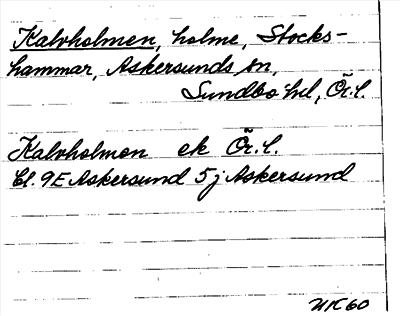 Kalvholmen, holme, Stocks-
hammar, Askersunds sn,
Sundbo hd, Ör.l.
Kalvholmen ek Ör.l.
Bl. 9E Askersund 5j Askersund
NK60